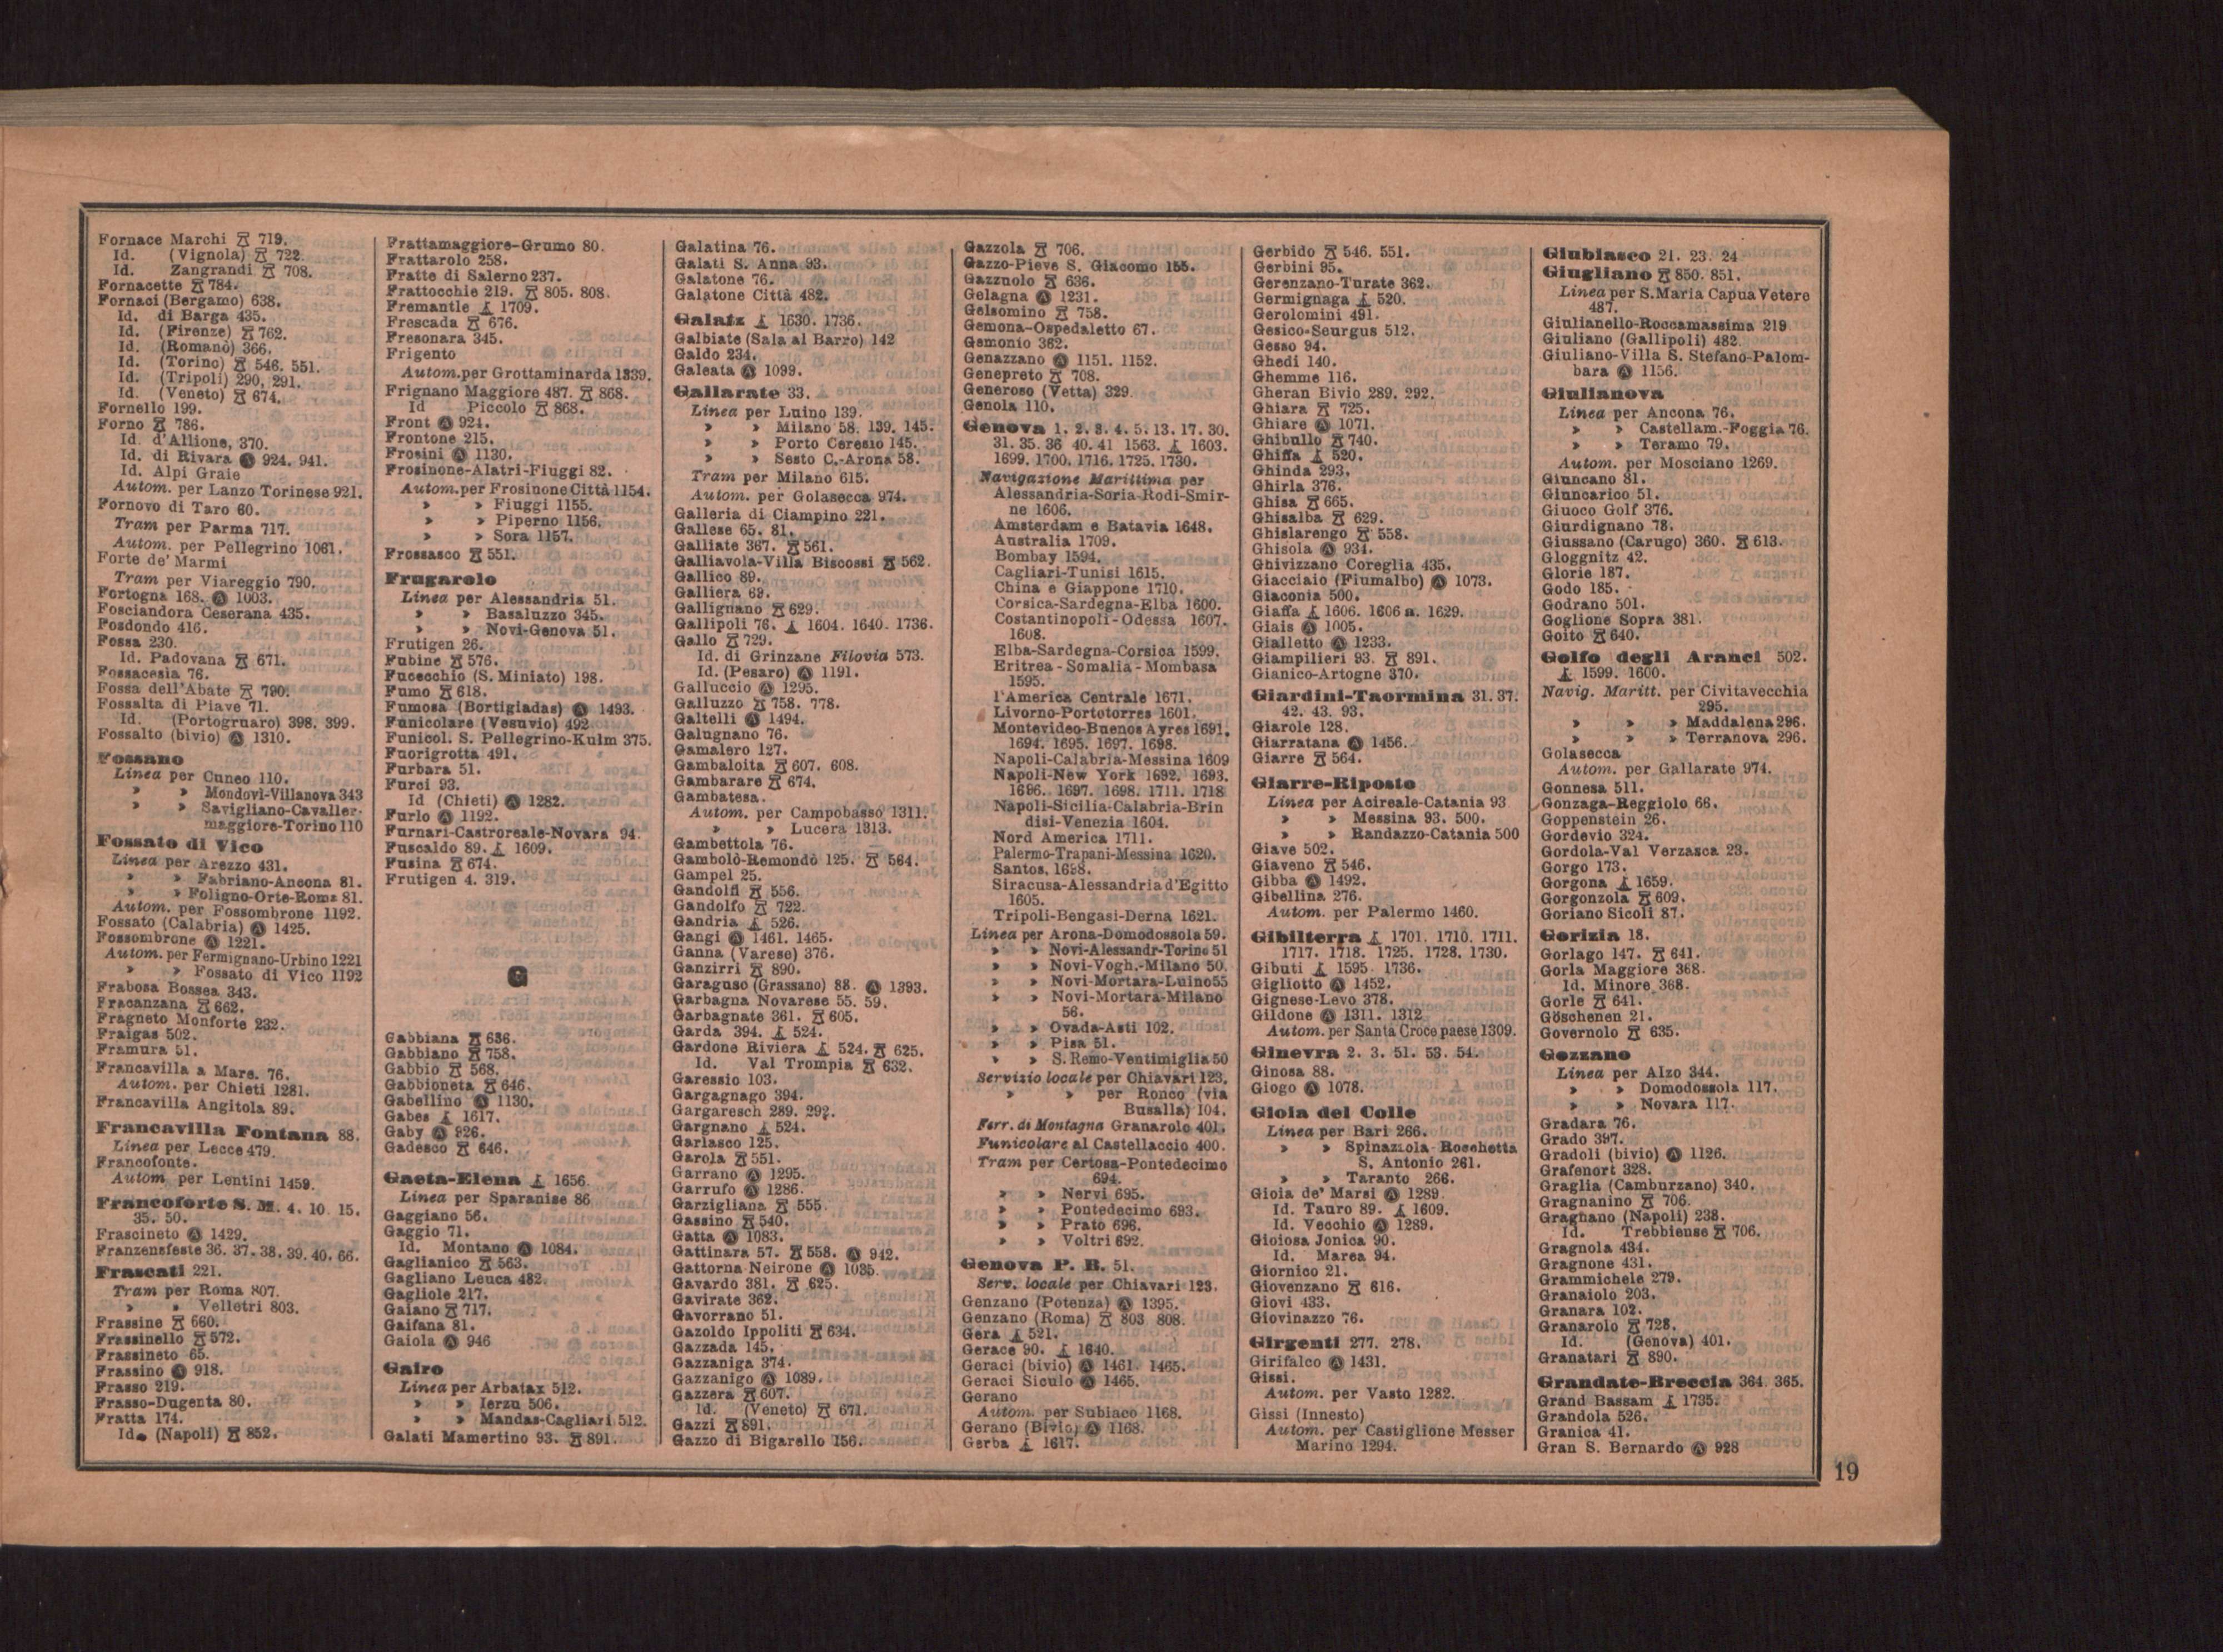 Fornace Marchi 719.
Id. (Vignola) 722.
Id. Zangrandi 708.
Fornacette 784.
Fornaci (Bergamo) 638.
Id. di Barga 435.
Id. (Firenze) 762.
Id. (Romanò) 366.
Id. (Torino) 546. 551.
Id. (Tripoli) 290, 291.
Id. (Veneto) 674.
Fornello 199.
Forno 786.
Id. d'Allione, 370.
Id. di Rivara Ⓐ 924. 941.
Id. Alpi Graie
Autom. per Lanzo Torinese 921.
Fornovo di Taro 60.
Tram per Parma 717.
Autom. per Pellegrino 1061.
Forte de' Marmi
Tram per Viareggio 790.
Fortogna 168. Ⓐ 1003.
Fosciandora Ceserana 435.
Fosdondo 416.
Fossa 230.
Id. Padovana 671.
Fossacesia 76.
Fossa dell'Abate 790.
Fossalta di Piave 71.
Id. (Portogruaro) 398. 399.
Fossalto (bivio) Ⓐ 1310.
Fossano
Linea per Cuneo 110.
» » Mondovì-Villanova 343
» » Savigliano-Cavaller-
maggiore-Torino 110
Fossato di Vico
Linea per Arezzo 431.
» » Fabriano-Ancona 81.
» » Foligno-Orte-Roma 81.
Autom. per Fossombrone 1192.
Fossato (Calabria) Ⓐ 1425.
Fossombrone Ⓐ 1221.
Autom. per Fermignano-Urbino 1221
» » Fossato di Vico 1192
Frabosa Bossea 343.
Fracanzana 662.
Fragneto Monforte 232.
Fraigas 502.
Framura 51.
Francavilla a Mare. 76.
Autom. per Chieti 1281.
Francavilla Angitola 89.
Francavilla Fontana 88.
Linea per Lecce 479.
Francofonte.
Autom. per Lentini 1459.
Francoforte S. M. 4. 10. 15.
35. 50.
Frascineto Ⓐ 1429.
Franzensfeste 36. 37. 38. 39. 40. 66.
Frascati 221.
Tram per Roma 807.
» » Velletri 803.
Frassine 660.
Frassinello 572.
Frassineto 65.
Frassino Ⓐ 918.
Frasso 219.
Frasso-Dugenta 80.
Fratta 174.
Id. (Napoli) 852.
Frattamaggiore-Grumo 80.
Frattarolo 258.
Fratte di Salerno 237.
Frattocchie 219. 805. 808.
Fremantle 1709.
Frescada 676.
Fresonara 345.
Frigento
Autom. per Grottaminarda 1339.
Frignano Maggiore 487. 868.
Id Piccolo 868.
Front Ⓐ 924.
Frontone 215.
Frosini Ⓐ 1130.
Frosinone-Alatri-Fiuggi 82.
Autom. per Frosinone Città 1154.
» » Fiuggi 1155.
» » Piperno 1156.
» » Sora 1157.
Frossasco 551.
Frugarolo
Linea per Alessandria 51.
» » Basaluzzo 345.
» » Novi-Genova 51.
Frutigen 26.
Fubine 576.
Fucecchio (S. Miniato) 198.
Fumo 618.
Fumosa (Bortigiadas) Ⓐ 1493.
Funicolare (Vesuvio) 492
Funicol. S. Pellegrino-Kulm 375.
Fuorigrotta 491.
Furbara 51.
Furci 93.
Id (Chieti) Ⓐ 1282.
Furlo Ⓐ 1192.
Furnari-Castroreale-Novara 94.
Fuscaldo 89. 1609.
Fusina 674.
Frutigen 4. 319.
G
Gabbiana 636.
Gabbiano 758.
Gabbio 568.
Gabbioneta 646.
Gabellino Ⓐ 1130.
Gabes 1617.
Gaby Ⓐ 926.
Gadesco 646.
Gaeta-Elena 1656.
Linea per Sparanise 86
Gaggiano 56.
Gaggio 71.
Id. Montano Ⓐ 1084.
Gaglianico 563.
Gagliano Leuca 482.
Gagliole 217.
Gaiano 717.
Gaifana 81.
Gaiola Ⓐ 946
Gairo
Linea per Arbatax 512.
» » Ierzu 506.
» » Mandas-Cagliari 512.
Galati Mamertino 93. 891.
Galatina 76.
Galati S. Anna 93.
Galatone 76.
Galatone Città 482.
Galatz 1630. 1736.
Galbiate (Sala al Barro) 142
Galdo 234.
Galeata Ⓐ 1099.
Gallarate 33.
Linea per Luino 139.
» » Milano 58. 139. 145.
» » Porto Ceresio 145.
» » Sesto C.-Arona 58.
Tram per Milano 615.
Autom. per Golasecca 974.
Galleria di Ciampino 221.
Gallese 65. 81.
Galliate 367. 561.
Galliavola-Villa Biscossi 562.
Gallico 89.
Galliera 69.
Gallignano 629.
Gallipoli 76. 1604. 1640. 1736.
Gallo 729.
Id. di Grinzane Filovia 573.
Id. (Pesaro) Ⓐ 1191.
Galluccio Ⓐ 1295.
Galluzzo 758. 778.
Galtelli Ⓐ 1494.
Galugnano 76.
Gamalero 127.
Gambaloita 607. 608.
Gambarare 674.
Gambatesa.
Autom. per Campobasso 1311.
» » Lucera 1313.
Gambettola 76.
Gambolò-Remondò 125. 564.
Gampel 25.
Gandolfi 556.
Gandolfo 722.
Gandria 526.
Gangi Ⓐ 1461. 1465.
Ganna (Varese) 376.
Ganzirri 890.
Garaguso (Grassano) 88. Ⓐ 1393.
Garbagna Novarese 55. 59.
Garbagnate 361. 605.
Garda 394. 524.
Gardone Riviera 524. 625.
Id. Val Trompia 632.
Garessio 103.
Gargagnago 394.
Gargaresch 289. 292.
Gargnano 524.
Garlasco 125.
Garola 551.
Garrano Ⓐ 1295.
Garrufo Ⓐ 1286.
Garzigliana 555.
Gassino 540.
Gatta Ⓐ 1083.
Gattinara 57. 558. Ⓐ 942.
Gattorna Neirone Ⓐ 1035.
Gavardo 381. 625.
Gavirate 362.
Gavorrano 51.
Gazoldo Ippoliti 634.
Gazzada 145.
Gazzaniga 374.
Gazzanigo Ⓐ 1089.
Gazzera 607.
Id. (Veneto) 671.
Gazzi 891.
Gazzo di Bigarello 156.
Gazzola 706.
Gazzo-Pieve S. Giacomo 155.
Gazzuolo 636.
Gelagna Ⓐ 1231.
Gelsomino 758.
Gemona-Ospedaletto 67.
Gemonio 362.
Genazzano Ⓐ 1151. 1152.
Genepreto 708.
Generoso (Vetta) 329.
Genola 110.
Genova 1. 2. 3. 4. 5. 13. 17. 30.
31. 35. 36 40. 41 1563. 1603.
1699. 1700. 1716. 1725. 1730.
Navigazione Marittima per
Alessandria-Soria-Rodi-Smir-
ne 1606.
Amsterdam e Batavia 1648.
Australia 1709.
Bombay 1594.
Cagliari-Tunisi 1615.
China e Giappone 1710.
Corsica-Sardegna-Elba 1600.
Costantinopoli-Odessa 1607.
1608.
Elba-Sardegna-Corsica 1599.
Eritrea-Somalia-Mombasa
1595.
l'America Centrale 1671.
Livorno-Portotorres 1601.
Montevideo-Buenos Ayres 1691.
1694. 1695. 1697. 1698.
Napoli-Calabria-Messina 1609
Napoli-New York 1692. 1693.
1696. 1697. 1698. 1711. 1718
Napoli-Sicilia-Calabria-Brin
disi-Venezia 1604.
Nord America 1711.
Palermo-Trapani-Messina 1620.
Santos, 1698.
Siracusa-Alessandria d'Egitto
1605.
Tripoli-Bengasi-Derna 1621.
Linea per Arona-Domodossola 59.
» » Novi-Alessandr-Torino 51
» » Novi-Vogh.-Milano 50.
» » Novi-Mortara-Luino 55
» » Novi-Mortara-Milano
56.
» » Ovada-Asti 102.
» » Pisa 51.
» » S. Remo-Ventimiglia 50
Servizio locale per Chiavari 123.
» » per Ronco (via
Busalla) 104.
Ferr. di Montagna Granarolo 401.
Funicolare al Castellaccio 400.
Tram per Certosa-Pontedecimo
694.
» » Nervi 695.
» » Pontedecimo 693.
» » Prato 696.
» » Voltri 692.
Genova P. B. 51.
Serv. locale per Chiavari 123.
Genzano (Potenza) Ⓐ 1395.
Genzano (Roma) 803 808.
Gera 521.
Gerace 90. 1640.
Geraci (bivio) Ⓐ 1461. 1465.
Geraci Siculo Ⓐ 1465.
Gerano
Autom. per Subiaco 1168.
Gerano (Bivio) Ⓐ 1168.
Gerba 1617.
Gerbido 546. 551.
Gerbini 95.
Gerenzano-Turate 362.
Germignaga 520.
Gerolomini 491.
Gesico-Seurgus 512.
Gesso 94.
Ghedi 140.
Ghemme 116.
Gheran Bivio 289. 292.
Ghiara 725.
Ghiare Ⓐ 1071.
Ghibullo 740.
Ghiffa 520.
Ghinda 293.
Ghirla 376.
Ghisa 665.
Ghisalba 629.
Ghislarengo 558.
Ghisola Ⓐ 934.
Ghivizzano Coreglia 435.
Giacciaio (Fiumalbo) Ⓐ 1073.
Giaconia 500.
Giaffa 1606. 1606 a. 1629.
Giais Ⓐ 1005.
Gialletto Ⓐ 1233.
Giampilieri 93. 891.
Gianico-Artogne 370.
Giardini-Taormina 31. 37.
42. 43. 93.
Giarole 128.
Giarratana Ⓐ 1456.
Giarre 564.
Giarre-Riposto
Linea per Acireale-Catania 93
» » Messina 93. 500.
» » Randazzo-Catania 500
Giave 502.
Giaveno 546.
Gibba Ⓐ 1492.
Gibellina 276.
Autom. per Palermo 1460.
Gibilterra 1701. 1710. 1711.
1717. 1718. 1725. 1728. 1730.
Gibuti 1595. 1736.
Gigliotto Ⓐ 1452.
Gignese-Levo 378.
Gildone Ⓐ 1311. 1312
Autom. per Santa Croce paese 1309.
Ginevra 2. 3. 51. 53. 54.
Ginosa 88.
Giogo Ⓐ 1078.
Gioia del Colle
Linea per Bari 266.
» » Spinazzola-Rocchetta
S. Antonio 261.
» » Taranto 266.
Gioia de' Marsi Ⓐ 1289.
Id. Tauro 89. 1609.
Id. Vecchio Ⓐ 1289.
Gioiosa Jonica 90.
Id. Marea 94.
Giornico 21.
Giovenzano 616.
Giovi 433.
Giovinazzo 76.
Girgenti 277. 278.
Girifalco Ⓐ 1431.
Gissi.
Autom. per Vasto 1282.
Gissi (Innesto)
Autom. per Castiglione Messer
Marino 1294.
Giubiasco 21. 23. 24
Giugliano 850. 851.
Linea per S. Maria Capua Vetere
487.
Giulianello-Roccamassima 219
Giuliano (Gallipoli) 482.
Giuliano-Villa S. Stefano-Palom-
bara Ⓐ 1156.
Giulianova
Linea per Ancona 76.
» » Castellam.-Foggia 76.
» » Teramo 79.
Autom. per Mosciano 1269.
Giuncano 81.
Giuncarico 51.
Giuoco Golf 376.
Giurdignano 78.
Giussano (Carugo) 360. 613.
Gloggnitz 42.
Glorie 187.
Godo 185.
Godrano 501.
Goglione Sopra 381.
Goito 640.
Golfo degli Aranci 502.
1599. 1600.
Navig. Maritt. per Civitavecchia
295.
» » » Maddalena 296.
» » » Terranova 296.
Golasecca
Autom. per Gallarate 974.
Gonnesa 511.
Gonzaga-Reggiolo 66.
Goppenstein 26.
Gordevio 324.
Gordola-Val Verzasca 23.
Gorgo 173.
Gorgona 1659.
Gorgonzola 609.
Goriano Sicoli 87.
Gorizia 18.
Gorlago 147. 641.
Gorla Maggiore 368.
Id. Minore 368.
Gorle 641.
Göschenen 21.
Governolo 635.
Gozzano
Linea per Alzo 344.
» » Domodossola 117.
» » Novara 117.
Gradara 76.
Grado 397.
Gradoli (bivio) Ⓐ 1126.
Grafenort 328.
Graglia (Camburzano) 340.
Gragnanino 706.
Gragnano (Napoli) 238.
Id. Trebbiense 706.
Gragnola 434.
Gragnone 431.
Grammichele 279.
Granaiolo 203.
Granara 102.
Granarolo 728.
Id. (Genova) 401.
Granatari 890.
Grandate-Breccia 364. 365.
Grand Bassam 1735.
Grandola 526.
Granica 41.
Gran S. Bernardo Ⓐ 928
19